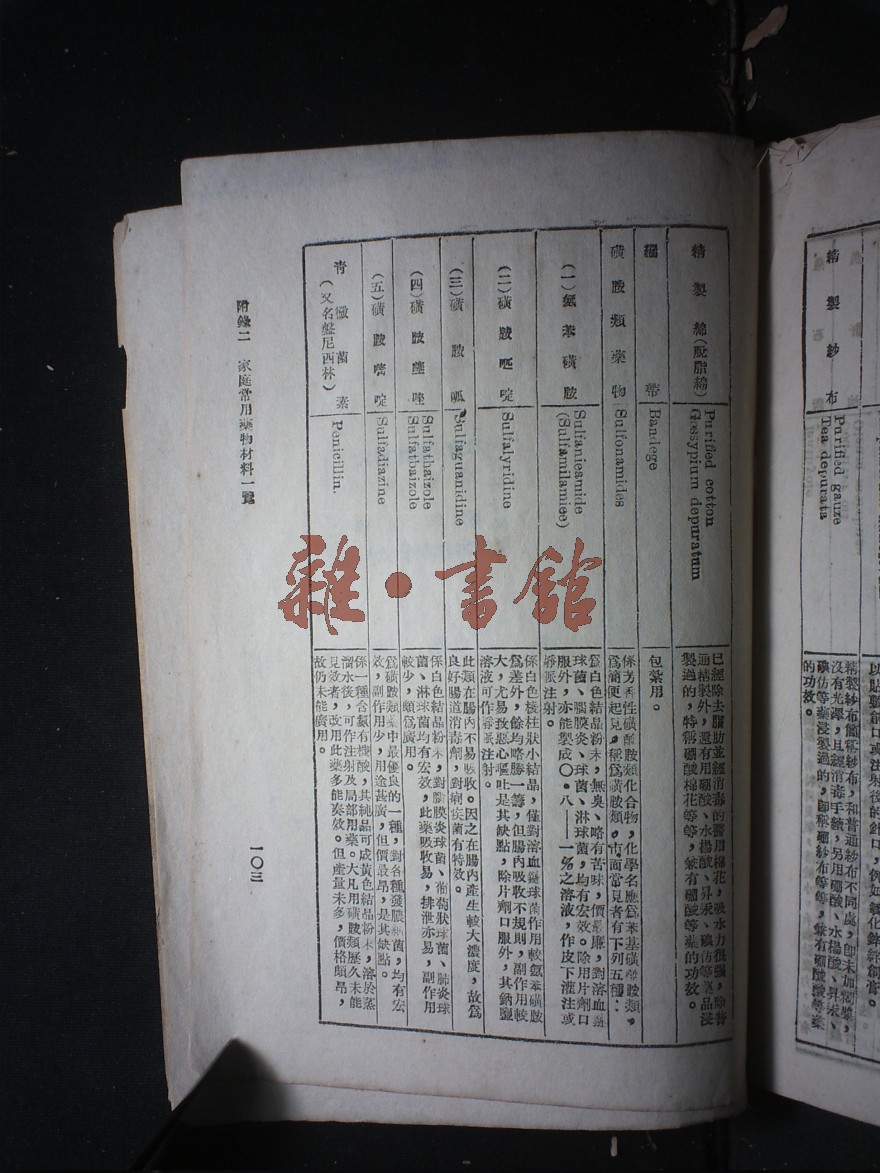 精製紗布
Purified gauze
Tea depurata
以貼蓋創口或注射後的針口,例如氧化鋅絆創膏。
精製紗布簡稱紗布,和普通紗布不同處,卽未加
沒有光澤,且經消毒手續,另用硼酸、水楊酸、昇汞、
碘仿等藥浸製過的,卽稱硼紗布等等,兼有硼酸等藥
的功效。
精製綿(脫脂綿)
Purified cotton
Gossypium depuratum
已經除去脂肪並經消毒的醫用棉花,吸水力很强,除普
通精製外,還有用硼酸、水楊酸、昇汞、碘仿等藥品浸
製過的,特稱硼酸棉花等等,兼有硼酸等藥的功效。
繃帶
Bandege
包紮用。
磺胺類藥物
Sulfonamides
係芳香性磺醯胺類化合物,化學名應爲苯基磺醯胺類,
爲簡便起見,稱爲磺胺類。市面常見者有下列五種:
(一)氨苯磺胺
Sulfanieamide
(Sulfamilamiee)
爲白色結晶粉末,無臭、略有苦味,價最廉,對溶血鏈
球菌、腦膜炎、球菌、淋球菌,均有宏效。除用片劑口
服外,亦能製成〇·八——1%之溶液,作皮下灌注或
靜脈注射。
(二)磺胺吡啶
Sulfalyridine
係白色棱柱狀小結晶,僅對溶血鏈球菌作用較氨苯磺胺
爲差外,餘均略勝一籌,但腸內吸收不規則,副作用較
大,尤易致惡心嘔吐是其缺點,除片劑口服外,其鈉鹽
溶液可作靜脈注射。
(三)磺胺胍
Sulfaguanidine
此類在腸內不易吸收。因之在腸內產生較大濃度,故爲
良好腸道消毒劑,對痢疾菌有特效。
(四)磺胺噻唑
Sulfathaizole
Sulfatbaizole
係白色結晶粉末,對腦膜炎球菌、葡萄狀球菌、肺炎球
菌、淋球菌均有宏效,此藥吸收易,排泄亦易,副作用
較少,頗爲廣用。
(五)磺胺嘧啶
Sulfadiazine
爲磺胺類藥中最優良的一種,對各種發膿細菌,均有宏
效,副作用少,用途甚廣,但價最昂,是其缺點。
青黴菌素
(又名盤尼西林)
Penicillin.
係一種含氮有機酸,其純品可成黃色結晶粉末,溶於蒸
溜水後,可作注射及局部用藥。大凡用磺胺類歷久未能
見效者,改用此藥多能奏效。但產量未多,價格頗昂,
故仍未能廣用。
附錄二 家庭常用藥物材料一覽
一〇三
雜·書館